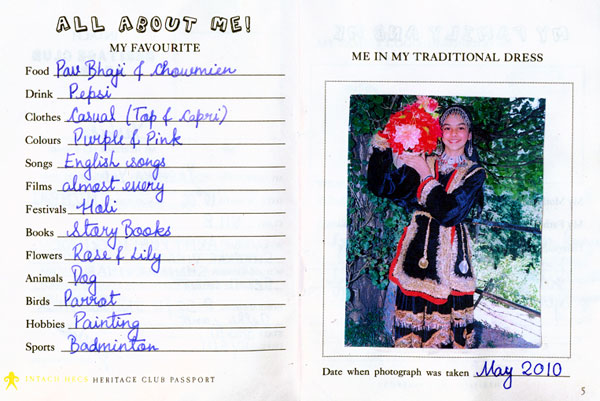 ALL ABOUT ME!
MY FAVOURITE
Food Pav Bhaji & Chowmien
Drink Pepsi
Clothes Casual (Top & Capri)
Colours Purple & Pink
Songs English songs
Films almost every
Festivals Holi
Books Story Books
Flowers Rose & Lily
Animals Dog
Birds Parrot
Hobbies Painting
Sports Badminton
INTACH HECS HERITAGE CLUB PASSPORT
MY FAMILY AND ME
ME IN MY TRADITIONAL DRESS
Date when photograph was taken May 2010
5